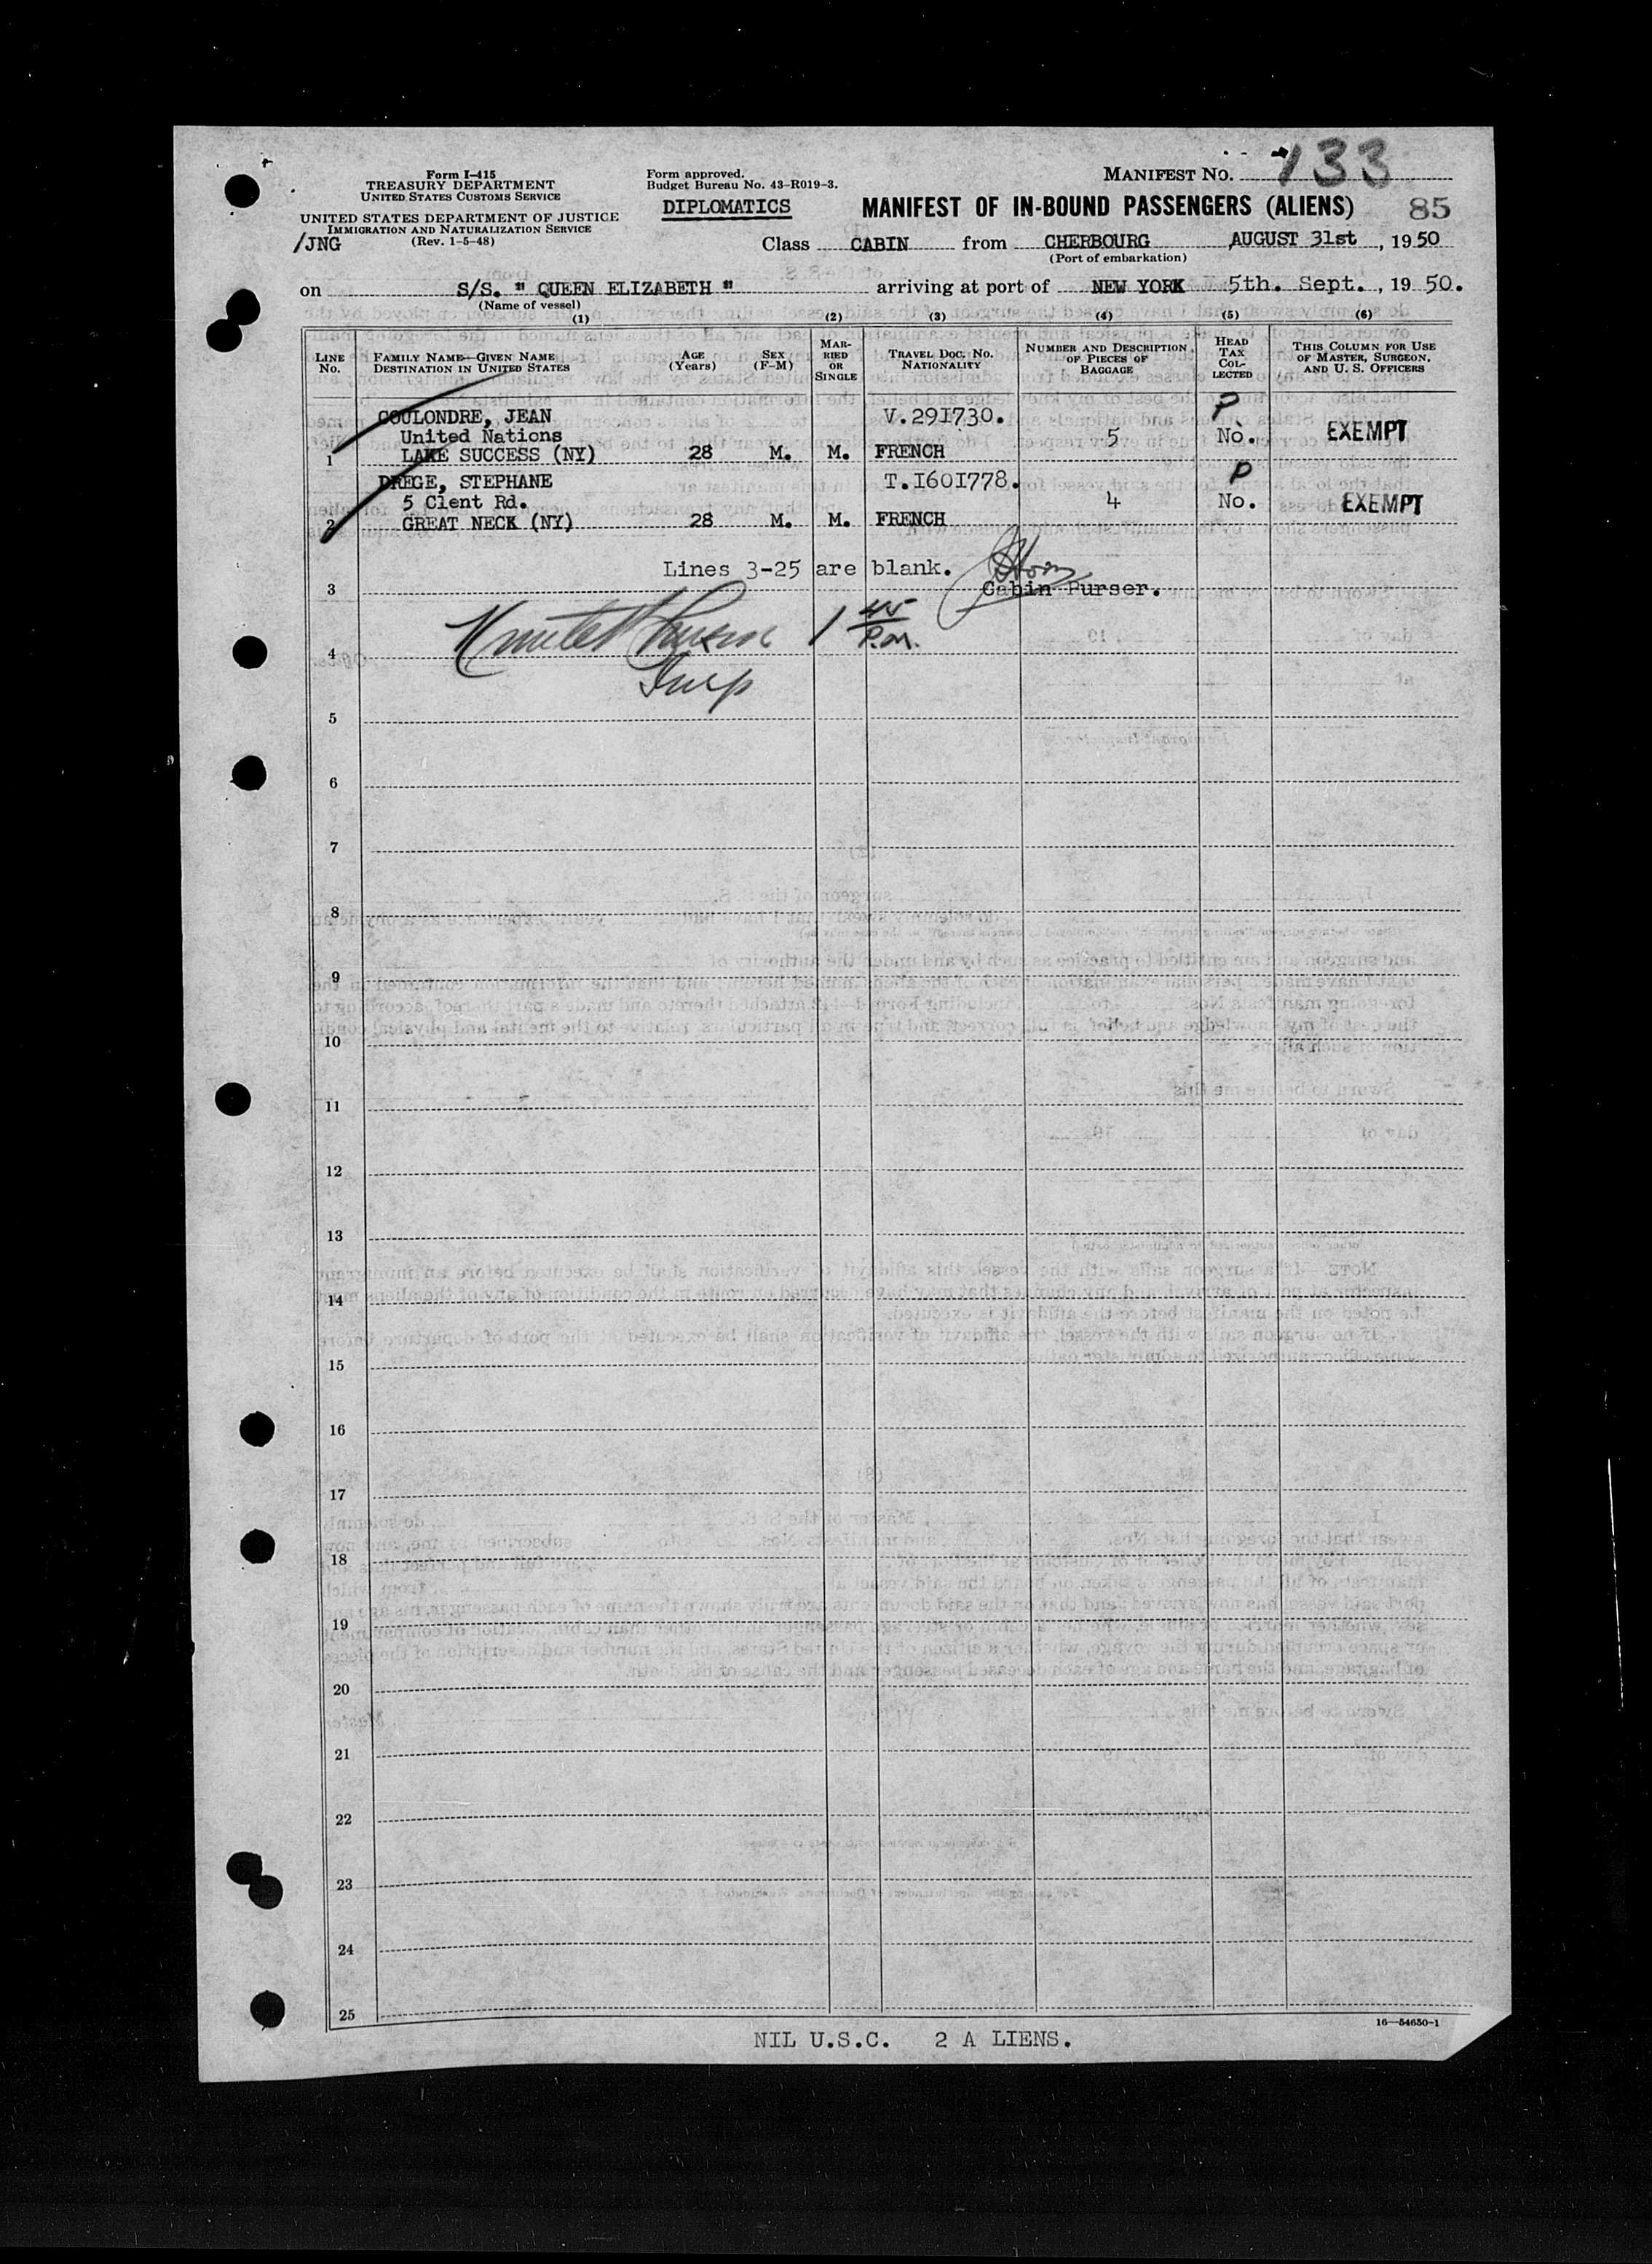 Form I-415
TREASURY DEPARTMENT
UNITED STATES CUSTOMS SERVICE
UNITED STATES DEPARTMENT OF JUSTICE
IMMIGRATION AND NATURALIZATION SERVICE
/JNG (Rev. 1-5-48)
Form approved.
Budget Bureau No. 43-R019-3.
DIPLOMATICS
MANIFEST NO. 133
MANIFEST OF IN-BOUND PASSENGERS (ALIENS) 85
Class CABIN from CHERBOURG AUGUST 31st, 1950
(Port of embarkation)
on S/S. " QUEEN ELIZABETH " arriving at port of NEW YORK 5th. Sept., 19 50.
(Name of vessel)
(1) (2) (3) (4) (5) (6)
LINE No. FAMILY NAME—GIVEN NAME DESTINATION IN UNITED STATES AGE (Years) SEX (F-M) MARRIED OR SINGLE TRAVEL DOC. NO. NATIONALITY NUMBER AND DESCRIPTION OF PIECES OF BAGGAGE HEAD TAX COLLECTED THIS COLUMN FOR USE OF MASTER, SURGEON, AND U. S. OFFICERS
COULONDRE, JEAN V.291730. P
United Nations 5 No. EXEMPT
1 LAKE SUCCESS (NY) 28 M. M. FRENCH
DREGE, STEPHANE T.I60I778. P
5 Clent Rd. 4 No. EXEMPT
2 GREAT NECK (NY) 28 M. M. FRENCH
Lines 3-25 are blank.
3 Cabin Purser.
1 45 P.M.
4
5
6
7
8
9
10
11
12
13
14
15
16
17
18
19
20
21
22
23
24
25
16—54650-1
NIL U.S.C. 2 A LIENS.